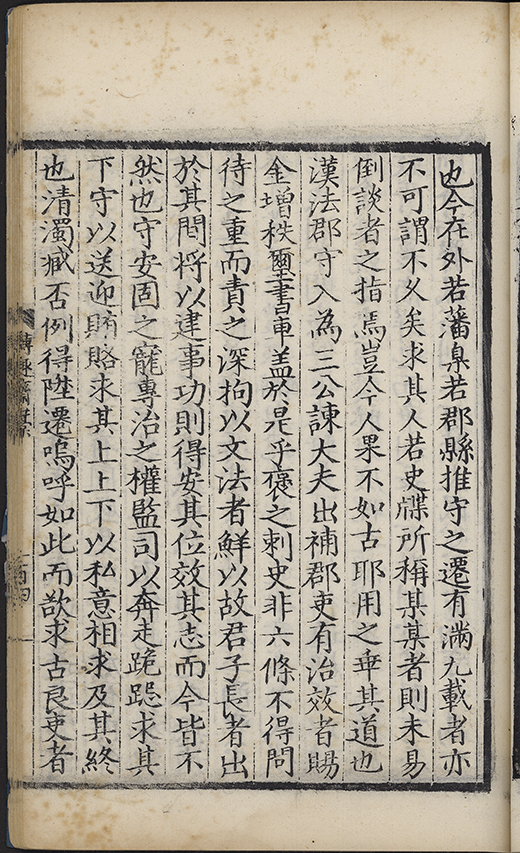 也今在外若藩臬若郡縣推守之遷有滿九載者亦
不可謂不乆矣求其人若史牒所稱某某者則未易
倒談者之指焉豈今人果不如古耶用之乖其道也
漢法郡守入為三公諫大夫出補郡吏有治效者賜
金增秩璽書車盖於是乎褒之刺史非六條不得問
待之重而責之深拘以文法者鮮以故君子長者出
於其間將以建事功則得安其位效其志而今皆不
然也守安固之寵專治之權監司以奔走跪跽求其
下守以送迎賄賂求其上上下以私意相求及其終
也清濁臧否例得陞遷嗚呼如此而欲求古良吏者